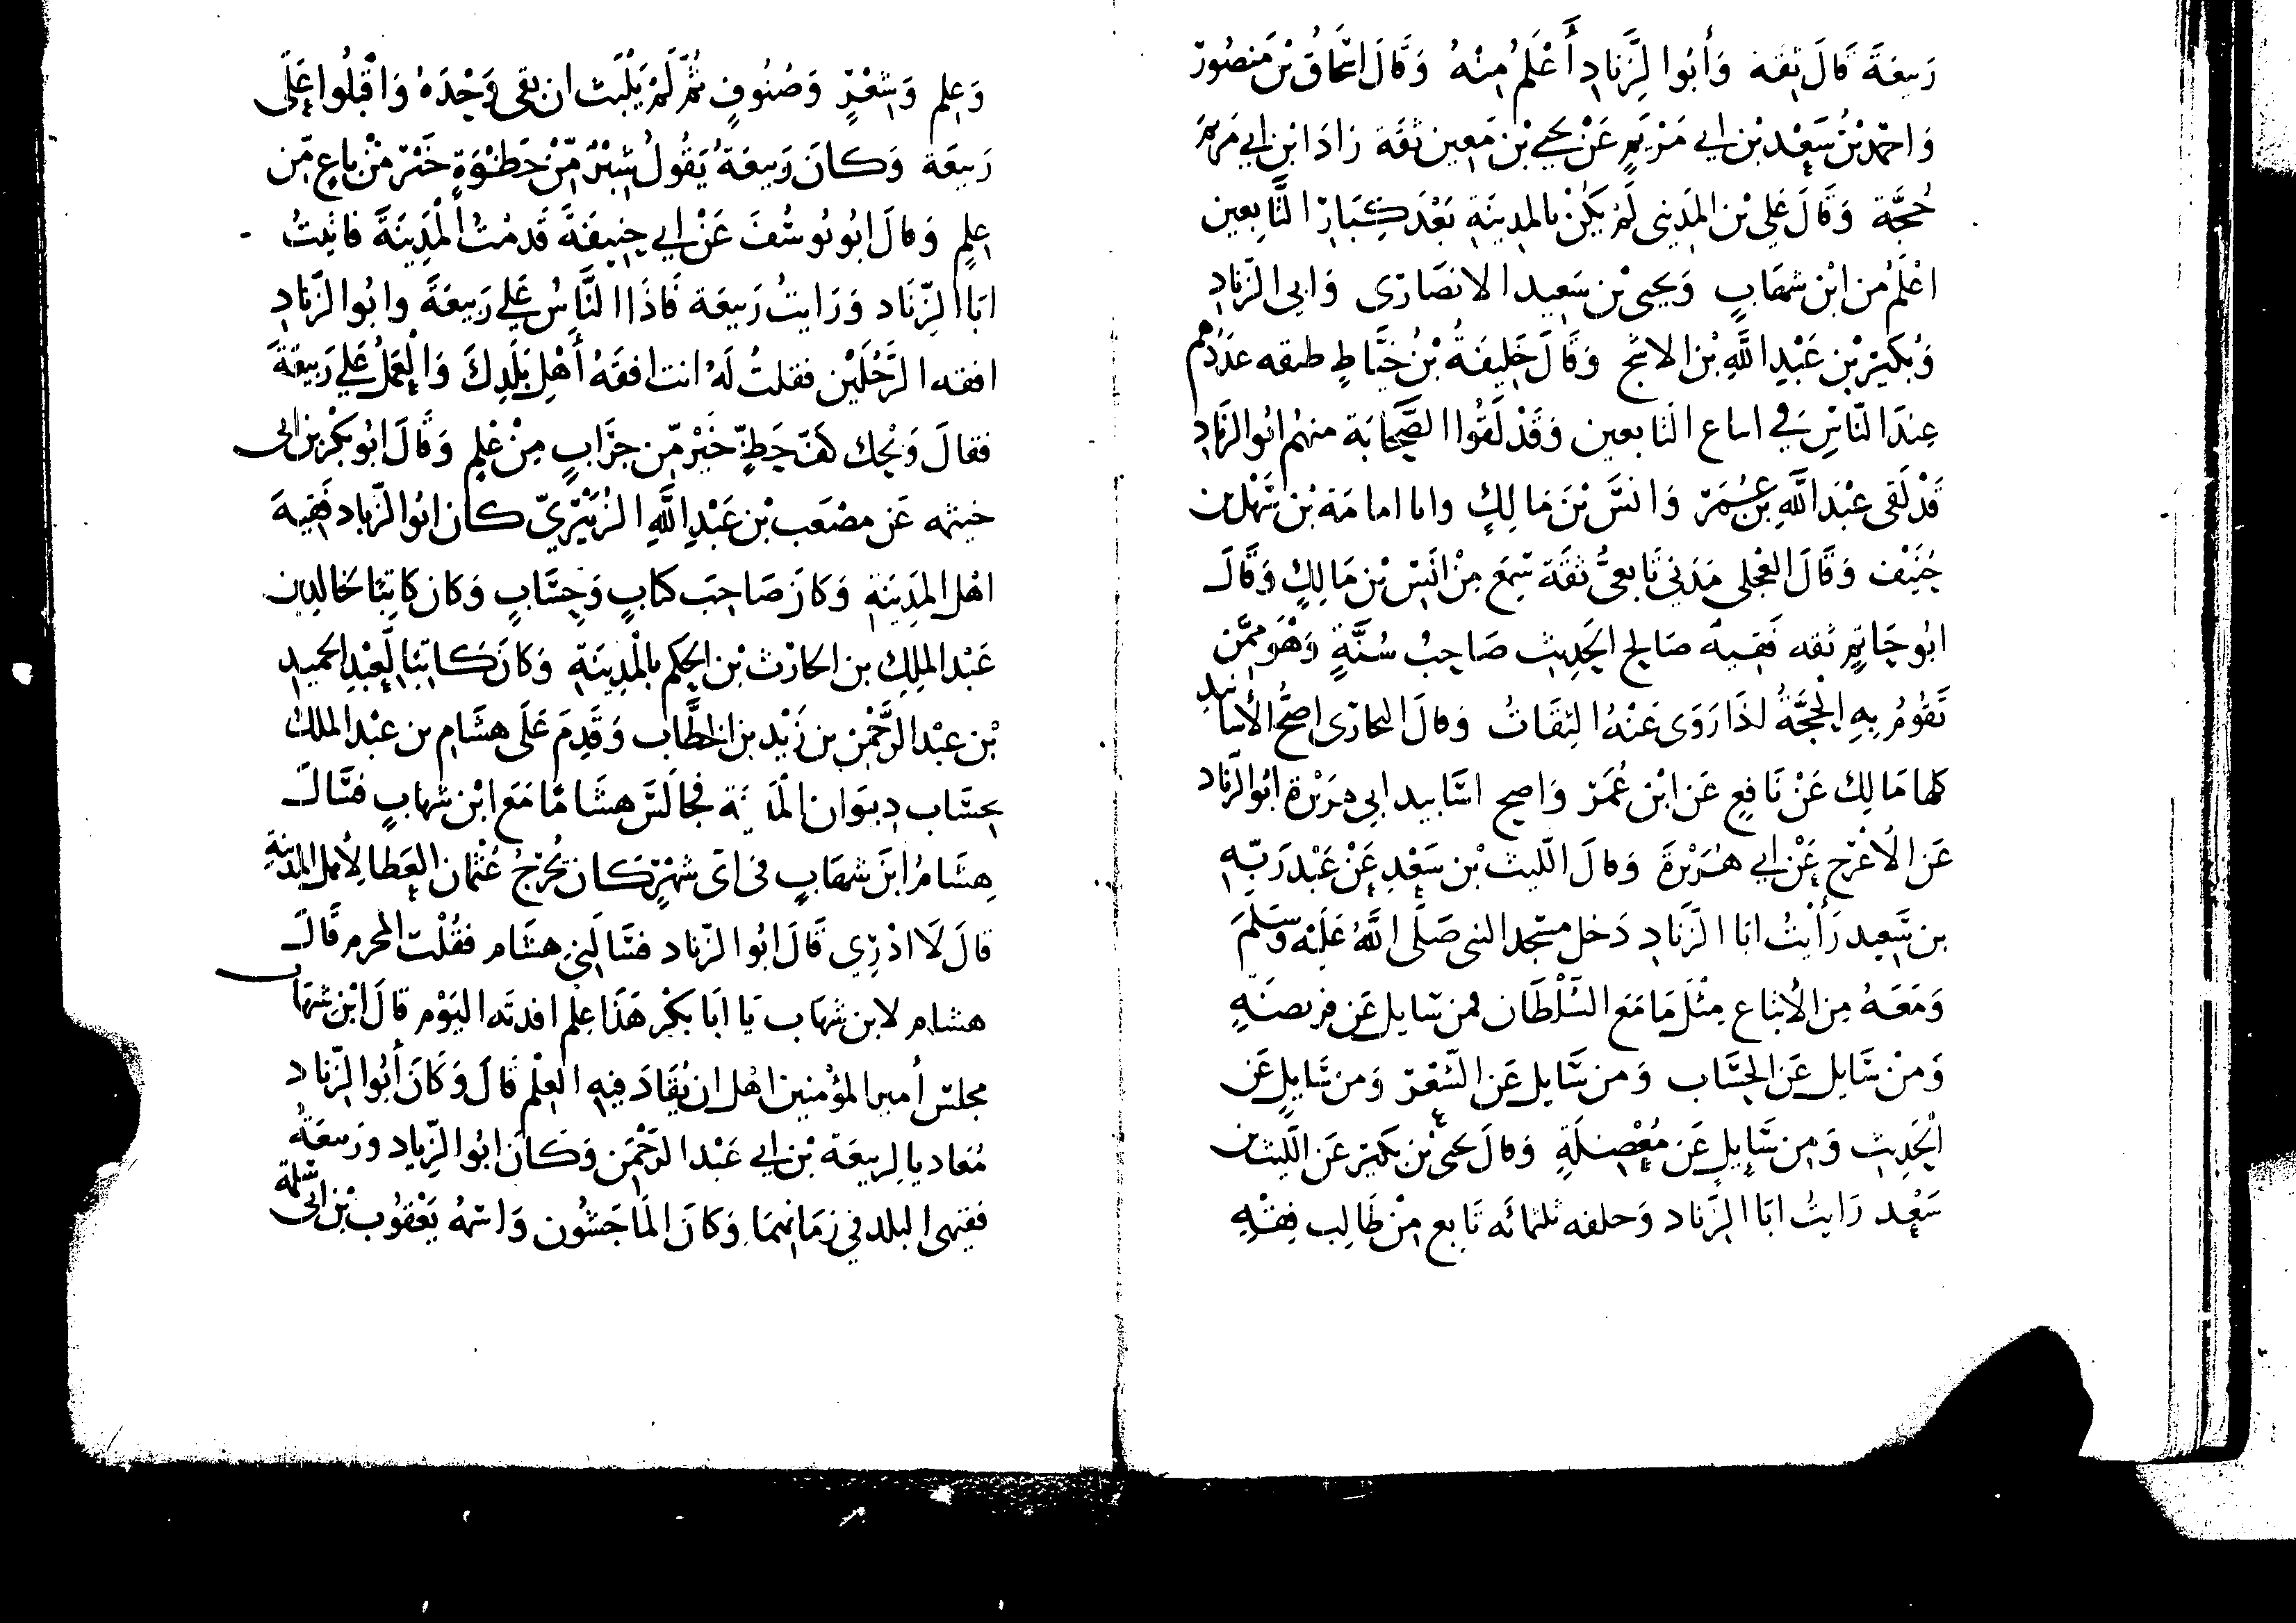 رَبيعَةَ قَالَ ثِقَة وَأَبُوا لزِّنَادِ أَعْلَمُ مِنْهُ وَقَالَ اسْحَاقُ بْن مَنصُورْ
وَاحْمَدُ بْنُ سَعِيْد بْن ابي مَرْيَم عَنْ يحيى بْن مَعِين ثقَة زَادَ ابْن ابي مَرْيَم
حُجَّة وَقَالَ عَلِي بْن المَديني لَمْ يَكُنْ بالمدِينَةِ بَعْدَ كِبَارْ التَّابِعِين
اعْلَمُ من ابْن شهَابٍ وَيحيى بْن سَعِيد الانصَارى وَابى الزّنَادِ
وَبُكَيْر بْن عَبْدِ اللَّهِ بْن الاشَج وَقَالَ خَلِيفَةُ بْنُ خيَّاطٍ طبقه عدَدُهم
عِندَ النّاسِ في اتباع التابعين وَقَدْ لَقُوا الصَّحَابَة منهُم ابُوا الزّنَادِ
قَدْ لَقى عَبْدَ اللَّهِ بْنَ عُمَرْ وَانسَ بْنَ مَالِكٍ وابا امامَة بْن سَهْل بن
حُنَيْف وَقَالَ العِجْلى مَدَني تَابعىُّ ثقَة سَمِعَ مِنْ انَسْ بْن مَالِكٍ وَقَالَ
ابُو حَاتِم ثقه فَقيهٌ صَالح الحَدِيث صَاحِبُ سُنَّةٍ وَهْوَ ممَّن
تَقُومُ بِهِ الحُجَّةُ اذَا رَوَى عَنْهُ الثِقَاتُ وَقَالَ البخَارى اصَحُّ الأسَانيد
كلها مَالِك عَنْ نَافِع عَن ابْن عُمَرْ وَاصح اسَانيد ابي هرَيْرة ابُوا الزّنَاد
عَن الأعْرَج عَنْ ابي هُرَيْرةَ وَقالَ اللّيث بْن سَعْدٍ عَنْ عَبْدِ رَبّهِ
بن سَعِيد رَأيْتُ ابَا الزّنَادِ دَخل مَسْجد النبى صَلَّى اللَّهُ عَلَيْه وَسَلَّمَ
وَمَعَهُ مِن الأتباع مِثْلَ مَا مَعَ السُّلْطَان فمن سَايل عَن فَريضَةٍ
وَمنْ سَايل عَن الحِسَاب وَمن سَايل عَن الشِّعْرْ وَمن سَايل عَن
الحَدِيث وَمن سَايل عَن مُعْضِلَةٍ وَقالَ يحيى بْن بكيْر عَن اللّيث بن
سَعْد رَايتُ ابَا الزّنَاد وَخلفه ثلثمائَه تَابع مِنْ طَالِب فِقهٍ
وَعِلمٍ وَشِعْرٍ وَصُنُوفٍ ثمَّ لَمْ يَلْبَث ان بَقى وَحْدَهُ وَاقْبَلُوا عَلَى
رَبيعَة وَكَانَ رَبيعَةُ يَقُولُ شِبْرٌ مّنْ حَظْوَةٍ خَيْرٌ مّنْ بَاعٍ مّن
عِلمٍ وَقَالَ ابُو يُوسُفَ عَنْ ابي حَنِيفَةَ قَدمْتُ الْمَدِينَةَ فَاتَيتُ
ابَا الزّنَاد وَرَايتُ رَبيعَة فَاذَا النَّاسُ عَلى رَبيعَةَ وابُوا الزّنَادِ
افقه الرَّجُلَيْن فقلتُ لَهُ انت افقَهُ أَهْلِ بَلَدِكَ وَالْعَمَلُ عَلى رَبيعَةَ
فقالَ وَيْحك كَفّ حَظٍّ خَيْر مّن جرَابٍ مِنْ عْلمٍ وَقَالَ ابُو بَكْر بن ابى
خيثمه عَن مصْعَب بْن عَبْدِ اللَّهِ الزُبَيْرِيّ كانَ ابُوا الزّناد فَقِيهَ
اهْل المَدِينَةِ وَكَانَ صَاحِبَ كتَابٍ وَحِسَابٍ وَكانَ كَاتبًا لخَالِد بن
عَبْد الملِكِ بن الحَارْث بْن الحكَم بالْمَدِينَةِ وَكانَ كَاتبًا لعَبْدِ الحَميدِ
بْن عبْد الرَّحْمٰن بن زَيْد بن الخَطَّاب وَقَدِمَ عَلَى هشَام بن عبْد الملك
بحسَاب ديوَان المَدينَة فَجَالَسَ هشَامًا مَعَ ابْن شهَابٍ فسَالَ
هِشَامُ ابنَ شهَابٍ فى اَى شهْرٍ كانَ يُخرجُ عُثْمان العَطا لأهل المدينةِ
قالَ لَا ادْرِي قَالَ ابُوا الزّناد فسَالَنِي هشَام فقُلْت المحرم قَالَ
هشام لابن شهَاب يَا ابَا بكْر هَذَا عِلم افدتَه اليَوْم قالَ ابْن شهَاب
مجلسْ أمير المؤْمنين اهْل ان يُفَادَ فيه العِلْم قَالَ وَكَانَ أبُوا الزّنَاد
مُعَاديا لربيعَة بْن ابي عَبْد الرّحْمٰن وَكانَ ابُوا الزّنَاد وَربيعَةُ
فقيهى البلد في زمَانهمَا وَكَانَ المَاجَشُون وَاسْمُهُ يَعْقُوب بْن ابى سَلمَة